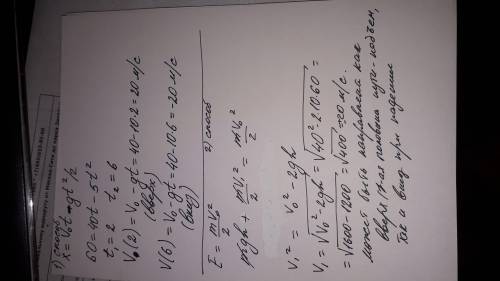 1) способ
x = v₀t - gt²/2
60 = 40t - 5t²
t₁ = 2 t₂ = 6
V(2) = V₀ - gt = 40 - 10·2 = 20 м/с
(вверх)
V(6) = V₀ - gt = 40 - 10·6 = -20 м/с
(вниз)
2) способ
E = mV₀²/2
mgh + mV₁²/2 = mV₀²/2
V₁² = V₀² - 2gh
V₁ = √V₀² - 2gh = √40² - 2·10·60 =
= √1600 - 1200 = √400 = 20 м/с.
может быть направлена как
вверх, 1-ая половина пути - подъем,
так и вниз при падении